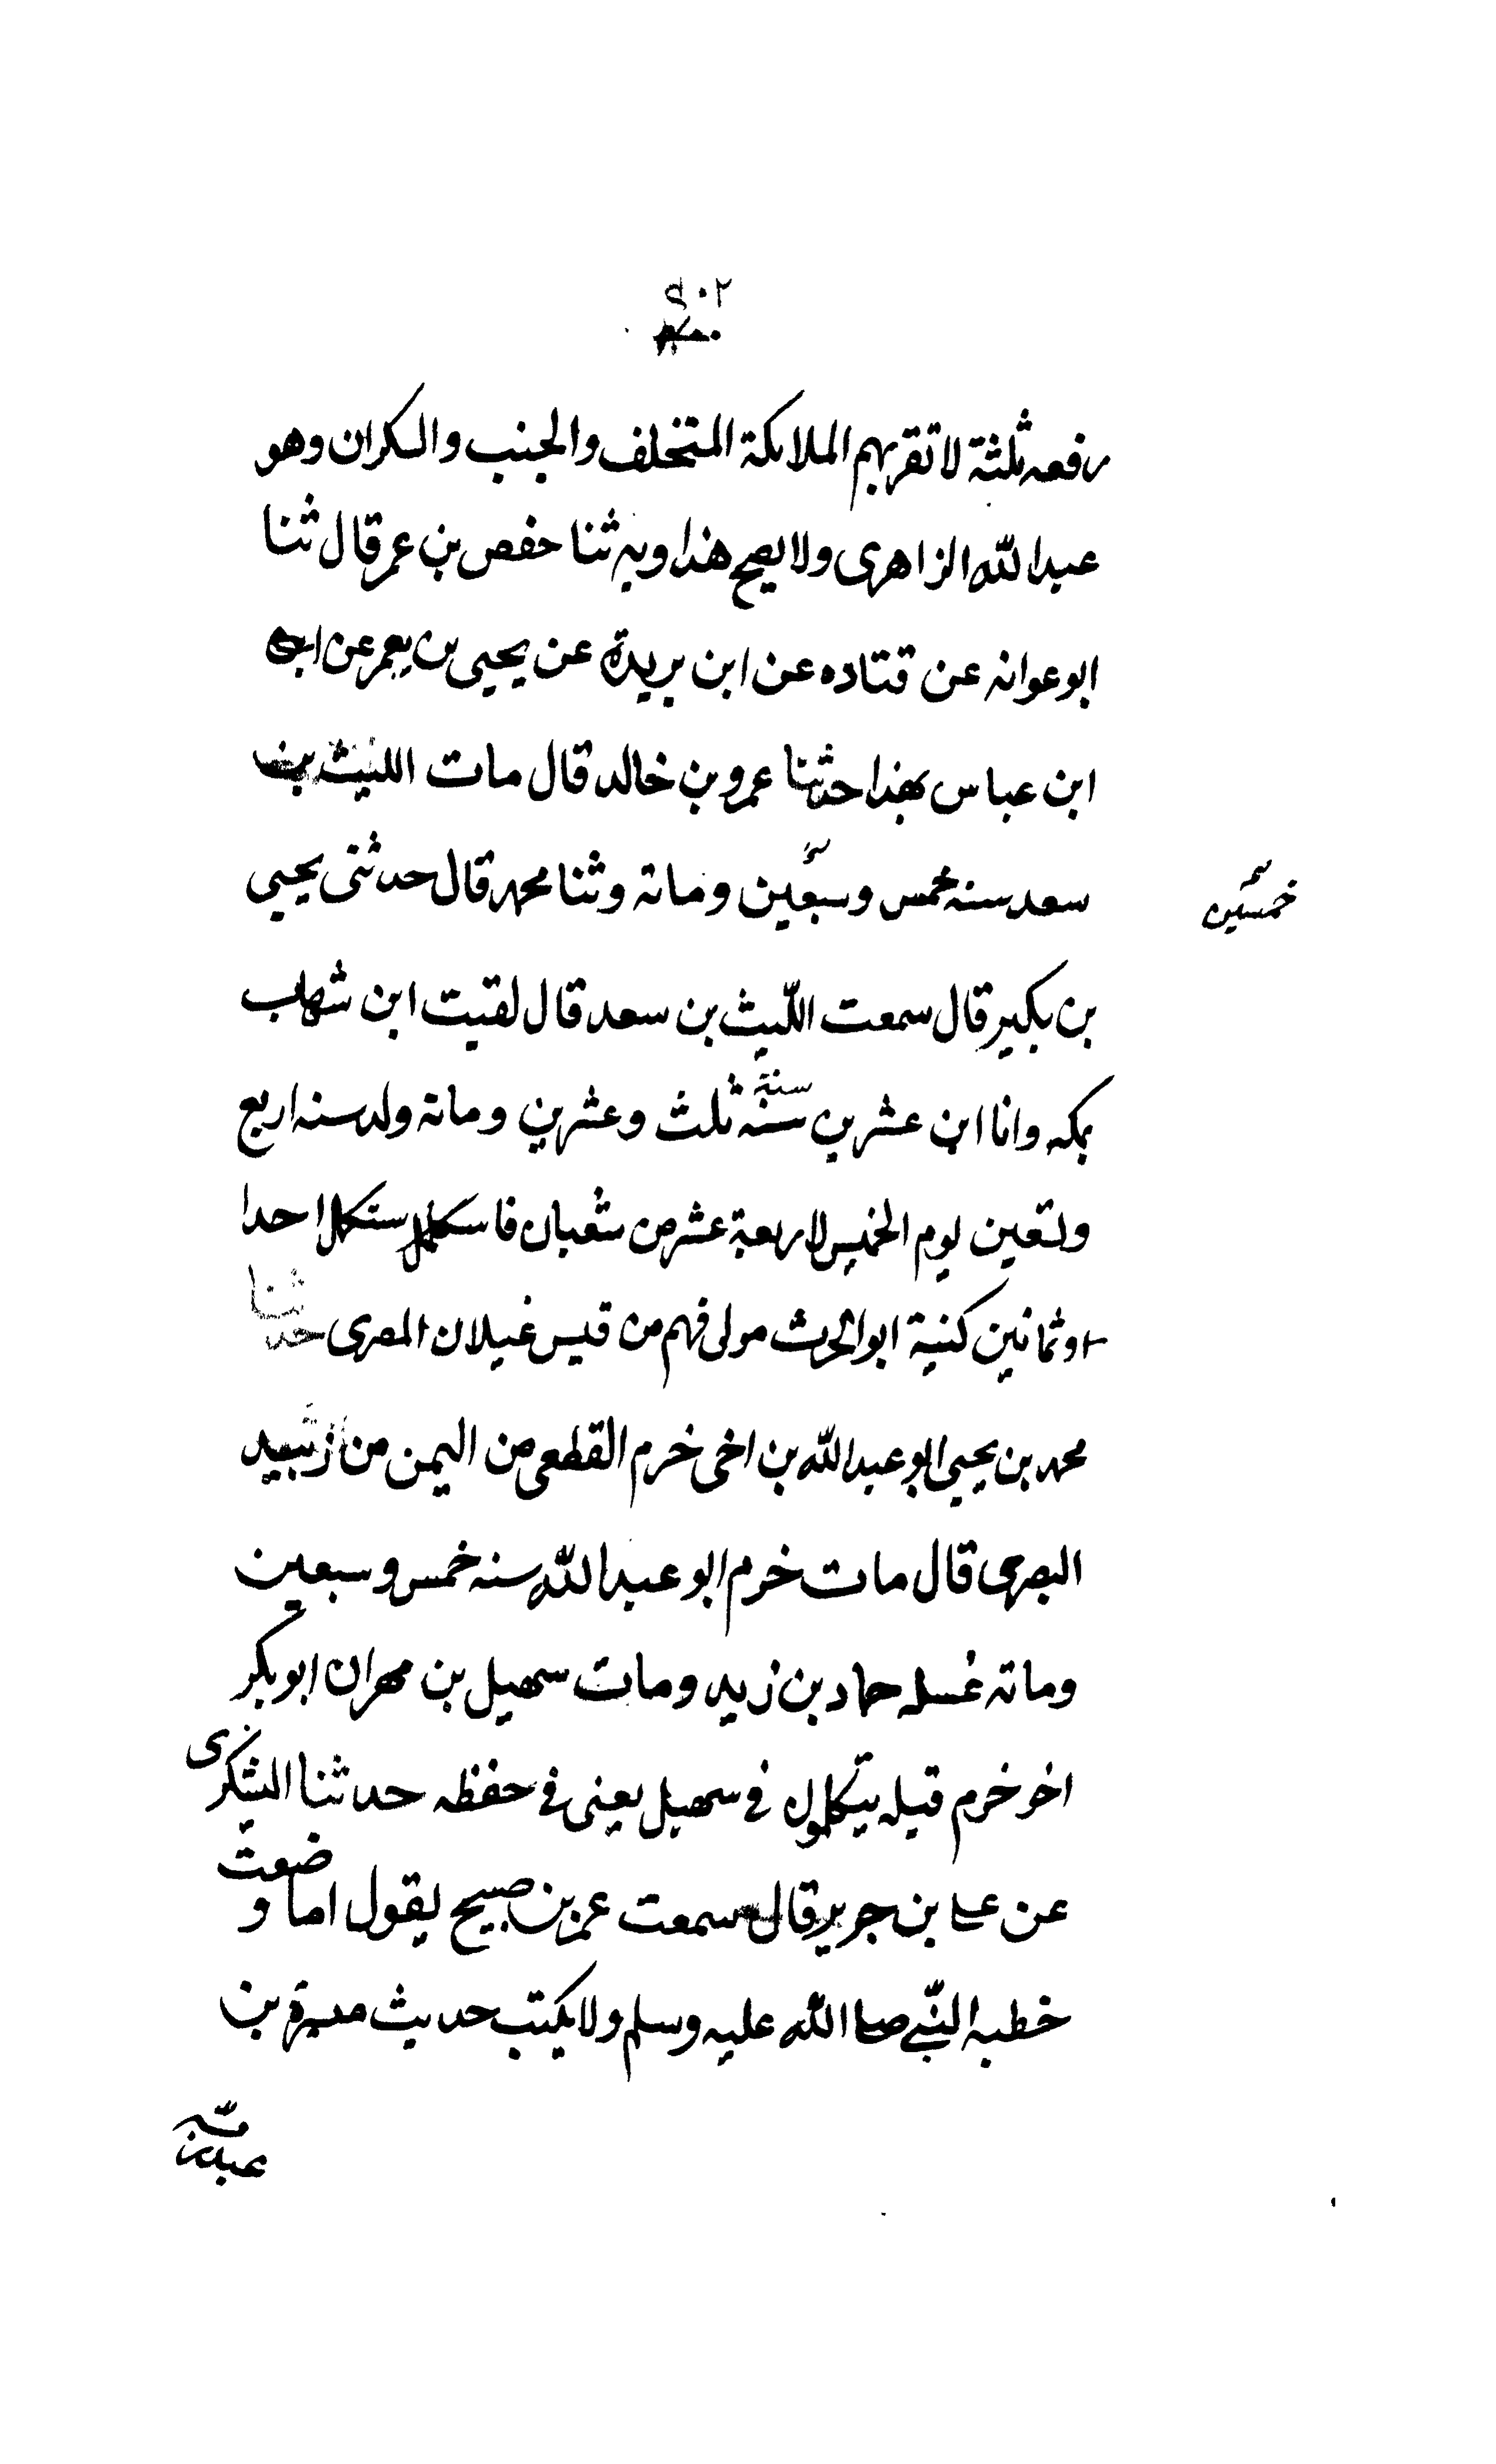 ٢٠٤
رفعه ثلثة لا تقربهم الملايكة المتخلف والجنب والسكران وهو
عبد الله الزاهرى ولا يصح هذا وبه ثنا حفص بن عمر قال ثنا
ابو عوانه عن قتاده عن ابن بريدة عن يحيى بن يعمر عن
ابن عباس بهذا حدثنا عمرو بن خالد قال مات الليث بن
سعد سنه خمس وسبعين وماته وثنا محمد قال حدثنى يحيى
خمسين
بن بكير قال سمعت الليث بن سعد قال لقيت ابن شهاب
بمكه وانا ابن عشرين سنة سنه ثلث وعشرين وماته ولد سنه اربع
وتسعين يوم الخميس لاربعة عشر من شعبان احدا
وثمانين كنية ابو الحرث مولى فهم من قيس غيلان المصرى حدثنا
محمد بن يحيى ابو عبد الله بن اخى خرم القطعى من اليمن من
البصرى قال مات خرم ابو عبد الله سنه خمس وسبعين
وماته غسله حماد بن زيد ومات سهيل بن مهران ابو بكر
اخو خرم قيله يتكلمون فى سهيل يعنى فى حفظه حدثنا اليشكرى
عن على بن جرير قال سمعت عمر بن صبيح يقول اما وضعت
خطبه النبى صلى الله عليه وسلم ولا يكتب حديث ميسرة بن